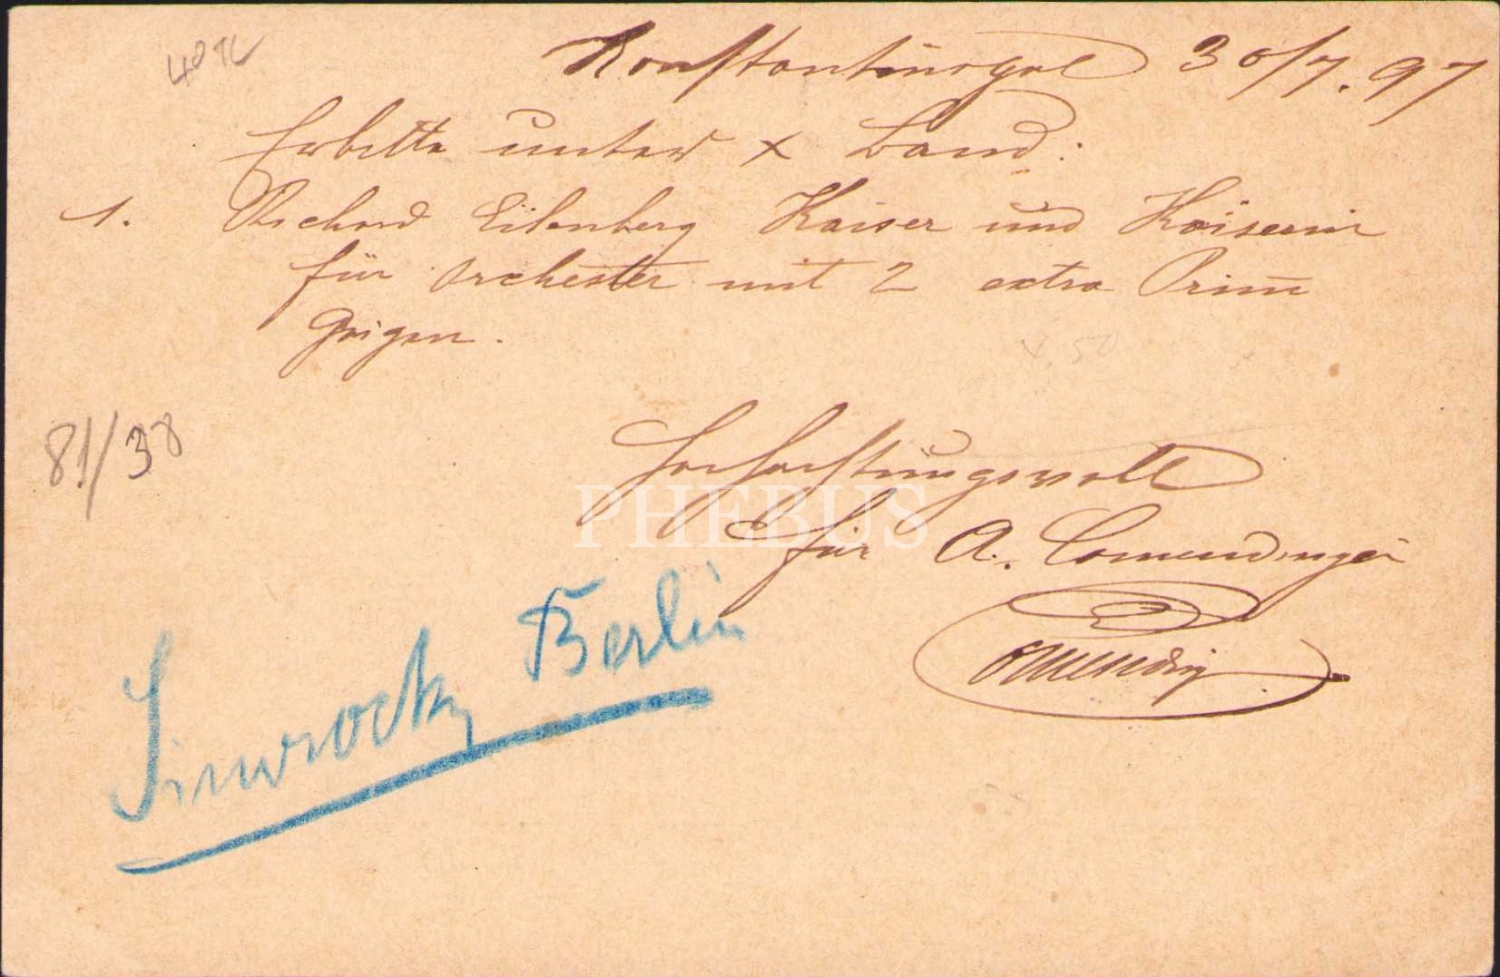 40 TL
Konstantinopel 30/7. 97
Erbitte unter x Band:
1. Richard Eilenberg Kaiser und Kaiserin
für Orchester mit 2 extra Prim
Geigen.
4.50
81/38
Hochachtungsvoll
PHEBUS
für A. Comendinger
Simrock, Berlin